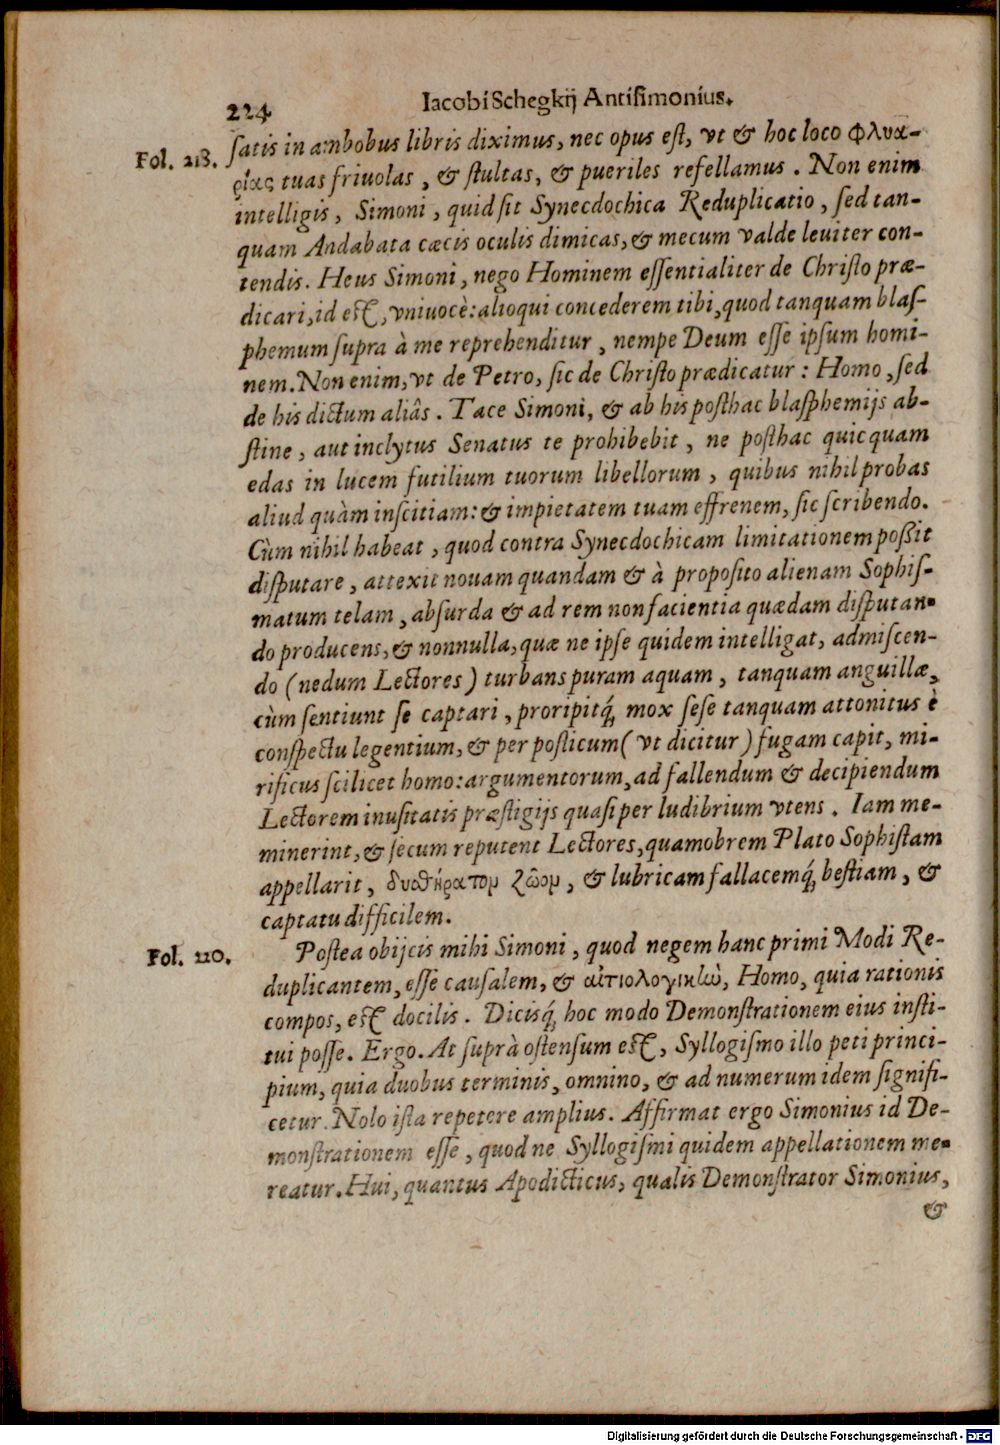 224 Iacobi Schegkij Antisimonius.
Fol. 218. satis in ambobus libris diximus, nec opus est, vt & hoc loco φλυα-
ρίας tuas friuolas, & stultas, & pueriles refellamus. Non enim
intelligis, Simoni, quid sit Synecdochica Reduplicatio, sed tan-
quam Andabata cæcis oculis dimicas, & mecum valde leuiter con-
tendis. Heus Simoni, nego Hominem essentialiter de Christo præ-
dicari, id est, vniuocè: alioqui concederem tibi, quod tanquam blas-
phemum supra à me reprehenditur, nempe Deum esse ipsum homi-
nem. Non enim, vt de Petro, sic de Christo prædicatur: Homo, sed
de his dictum aliâs. Tace Simoni, & ab his posthac blasphemijs ab-
stine, aut inclytus Senatus te prohibebit, ne posthac quicquam
edas in lucem futilium tuorum libellorum, quibus nihil probas
aliud quàm inscitiam: & impietatem tuam effrenem, sic scribendo.
Cùm nihil habeat, quod contra Synecdochicam limitationem poßit
disputare, attexit nouam quandam & à proposito alienam Sophis-
matum telam, absurda & ad rem non facientia quædam disputan-
do producens, & nonnulla, quæ ne ipse quidem intelligat, admiscen-
do (nedum Lectores) turbans puram aquam, tanquam anguillæ,
cùm sentiunt se captari, proripitq́; mox sese tanquam attonitus è
conspectu legentium, & per posticum (vt dicitur) fugam capit, mi-
rificus scilicet homo: argumentorum, ad fallendum & decipiendum
Lectorem inusitatis præstigijs quasi per ludibrium vtens. Iam me-
minerint, & secum reputent Lectores, quamobrem Plato Sophistam
appellarit, δυσθήρατον ζῶον, & lubricam fallacemq́; bestiam, &
captatu difficilem.
Fol. 220. Postea obijcis mihi Simoni, quod negem hanc primi Modi Re-
duplicantem, esse causalem, & αἰτιολογικὼ, Homo, quia rationis
compos, est docilis. Dicisq́; hoc modo Demonstrationem eius insti-
tui posse. Ergo. At suprà ostensum est, Syllogismo illo peti princi-
pium, quia duobus terminis, omnino, & ad numerum idem signifi-
cetur. Nolo ista repetere amplius. Affirmat ergo Simonius id De-
monstrationem esse, quod ne Syllogismi quidem appellationem me-
reatur. Hui, quantus Apodicticus, qualis Demonstrator Simonius,
&
Digitalisierung gefördert durch die Deutsche Forschungsgemeinschaft - DFG